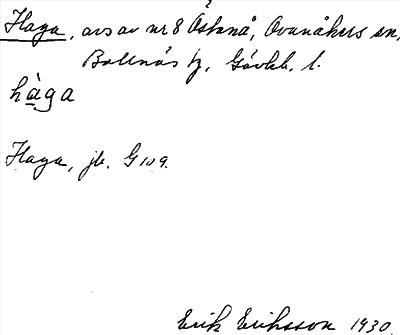 Haga, avs av nr 8 Åstanå, Ovanåkers sn,
Bollnäs tg, Gävleb. l.
hàga
Haga, jb. G 109.
Erik Eriksson 1930.